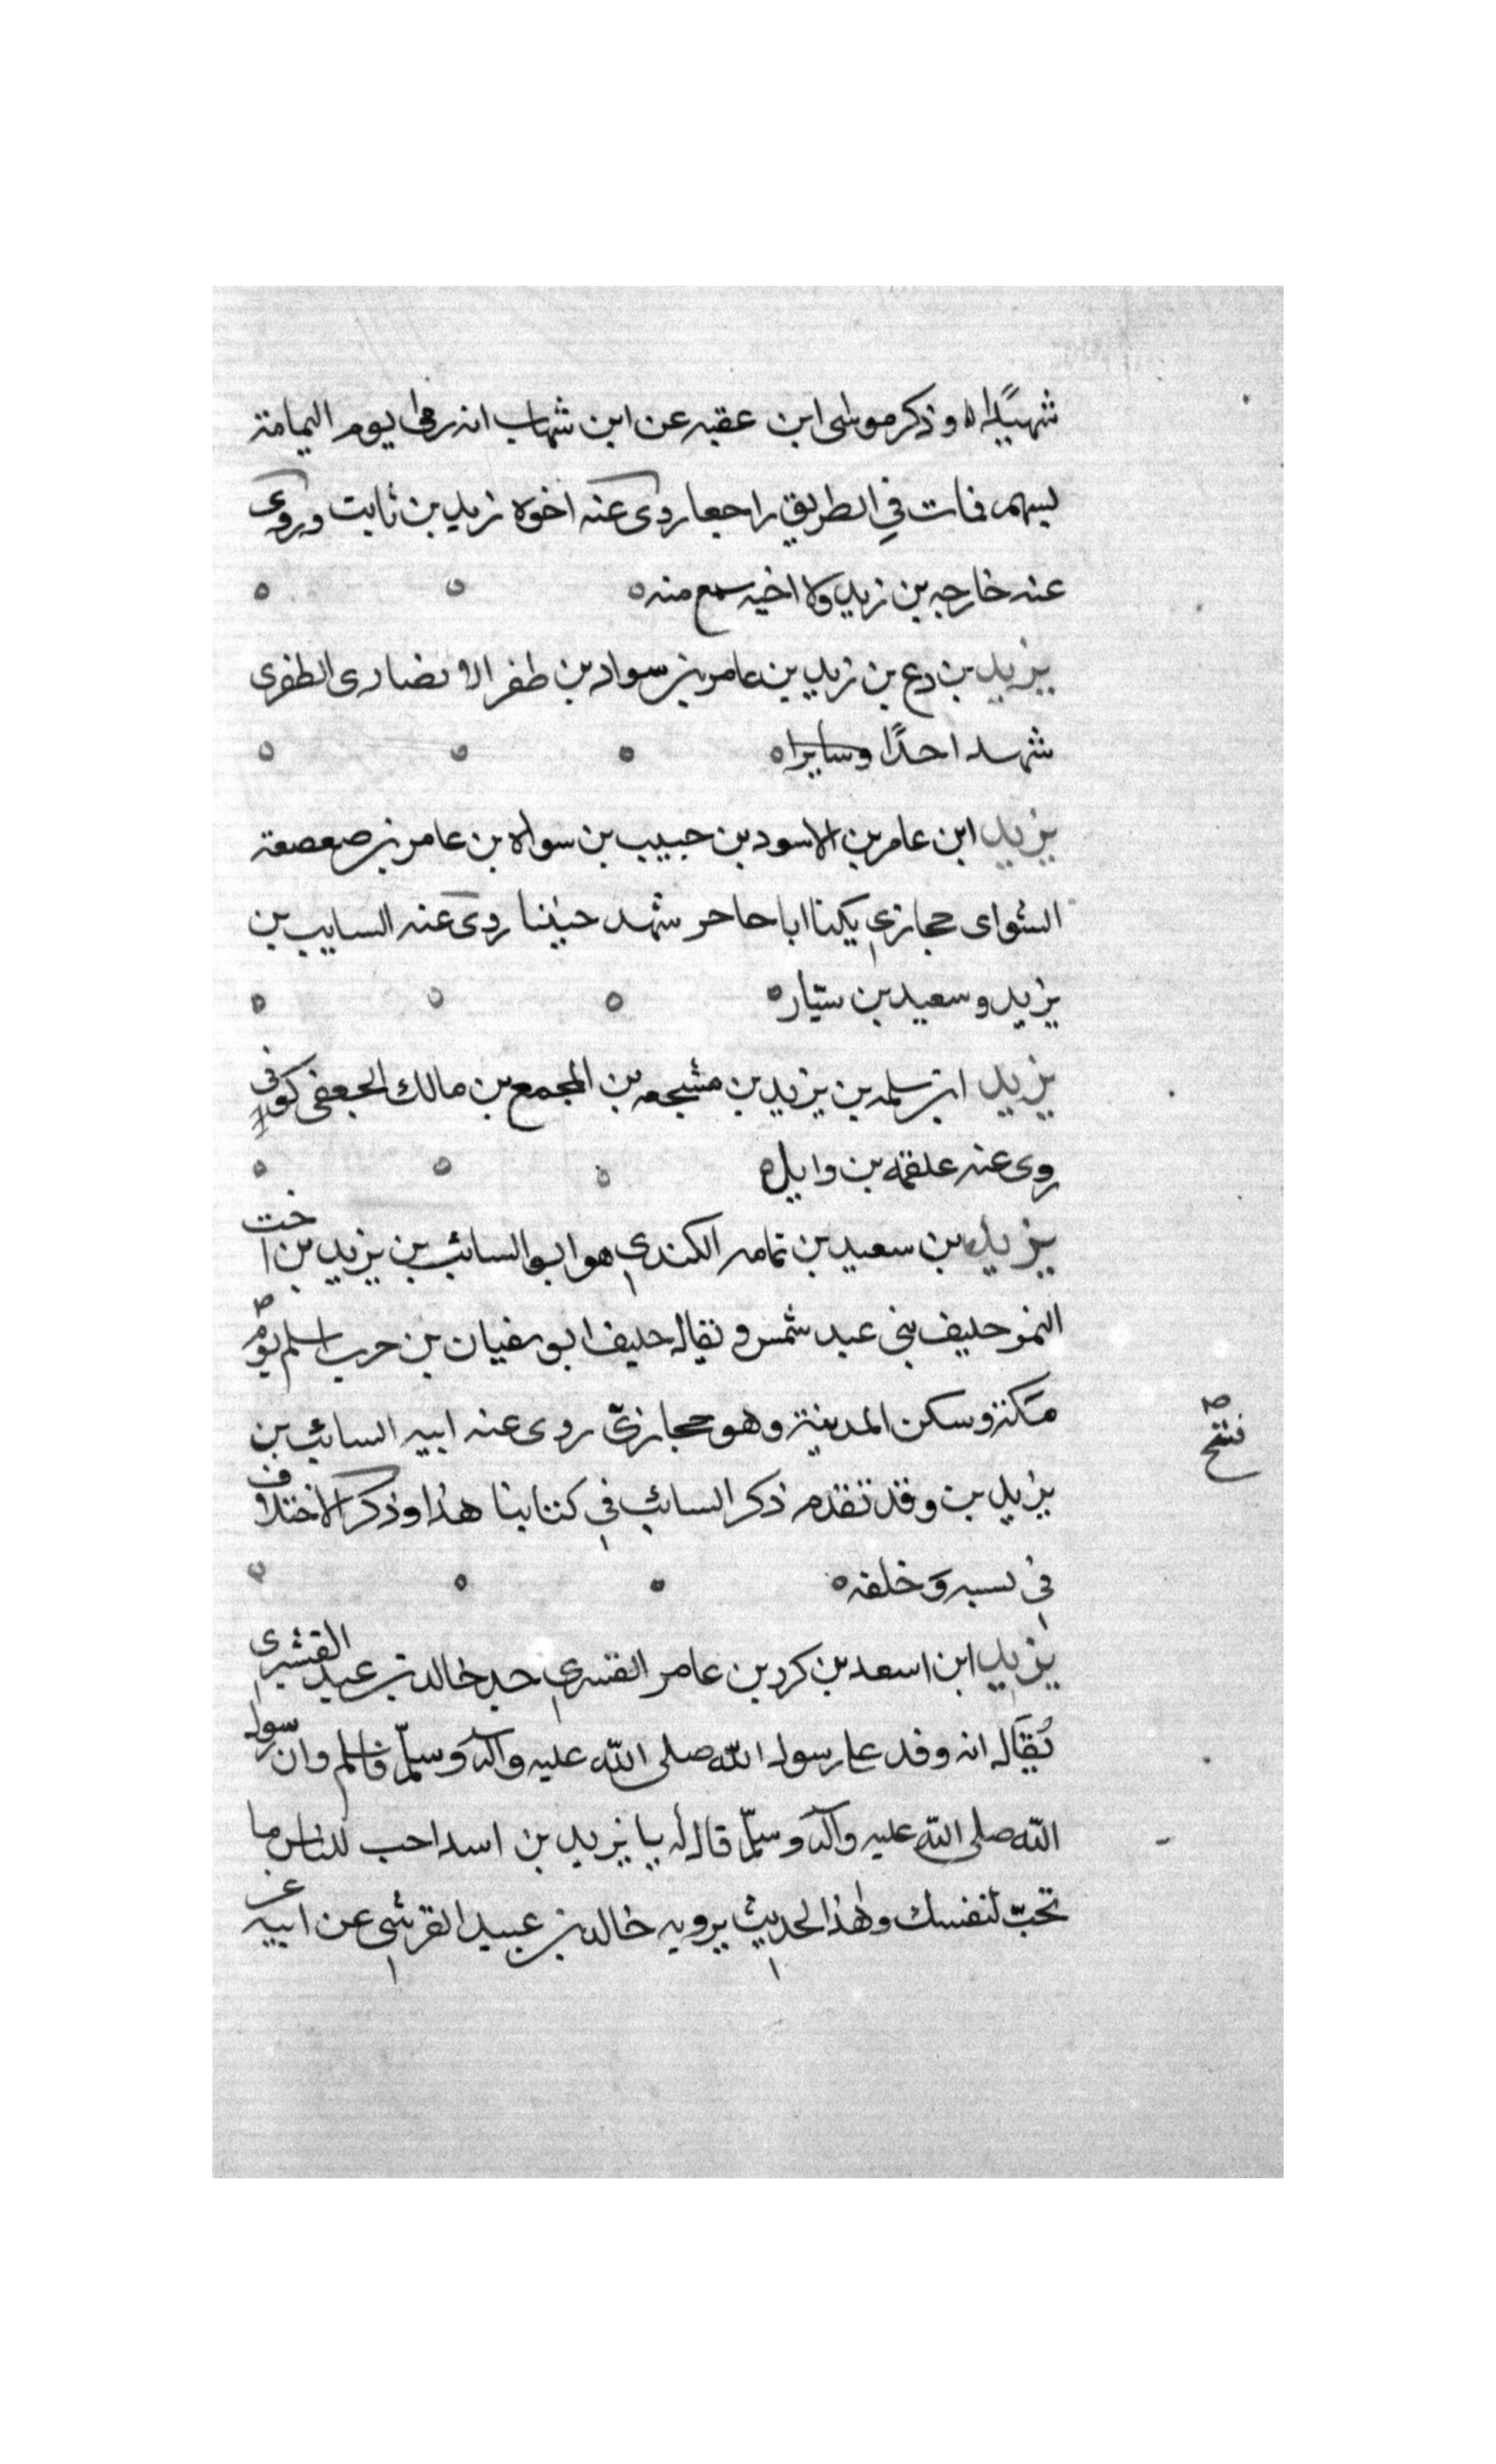 شهيدًا ه وذكر موسى ابن عقبه عن ابن شهاب انه رمى يوم اليمامة
بسهم فمات في الطريق راجعا روى عنه اخوه زيد بن ثابت وروى
عنه خارجه بن زيد ولا اخيه سمع منه ه
يزيد بن ردع بن زيد بن عامر بن سواد بن ظفر الانصارى الظفرى
شهد احدًا وسايرا ه
يزيد ابن عامر بن الاسود بن حبيب بن سواه بن عامر بن صعصعة
السواى حجازى يكنا ابا حاجر شهد حنينا روى عنه السايب بن
يزيد وسعيد بن سيّار ه
يزيد ابن سلمه بن يزيد بن مشجعه بن المجمع بن مالك الجعفى كوفى
روى عنه علقمه بن وايل ه
يزيد بن سعيد بن ثمامه الكندى هو ابو السائب بن يزيد بن اخت
النمر حليف بنى عبد شمس ويقال حليف ابو سفيان بن حرب اسلم يوم
فتح
مكة وسكن المدينة وهو حجازىّ روى عنه ابيه السائب بن
يزيد بن وقد تقدم ذكر السائب في كتابنا هذا وذكر الاختلاف
فى نسبه وخلفه ه
يزيد ابن اسعد بن كرد بن عامر القسرى جد خالد بن عبد القشيرى
يُقال انه وفد على رسول الله صلى الله عليه وآله وسلّم فاسلم وان رسول
الله صلى الله عليه وآله وسلّم قال له يا يزيد بن اسد احب للناس ما
تحبّ لنفسك وهذا الحديث يرويه خالد بن عبيد القرشى عن ابيه عن